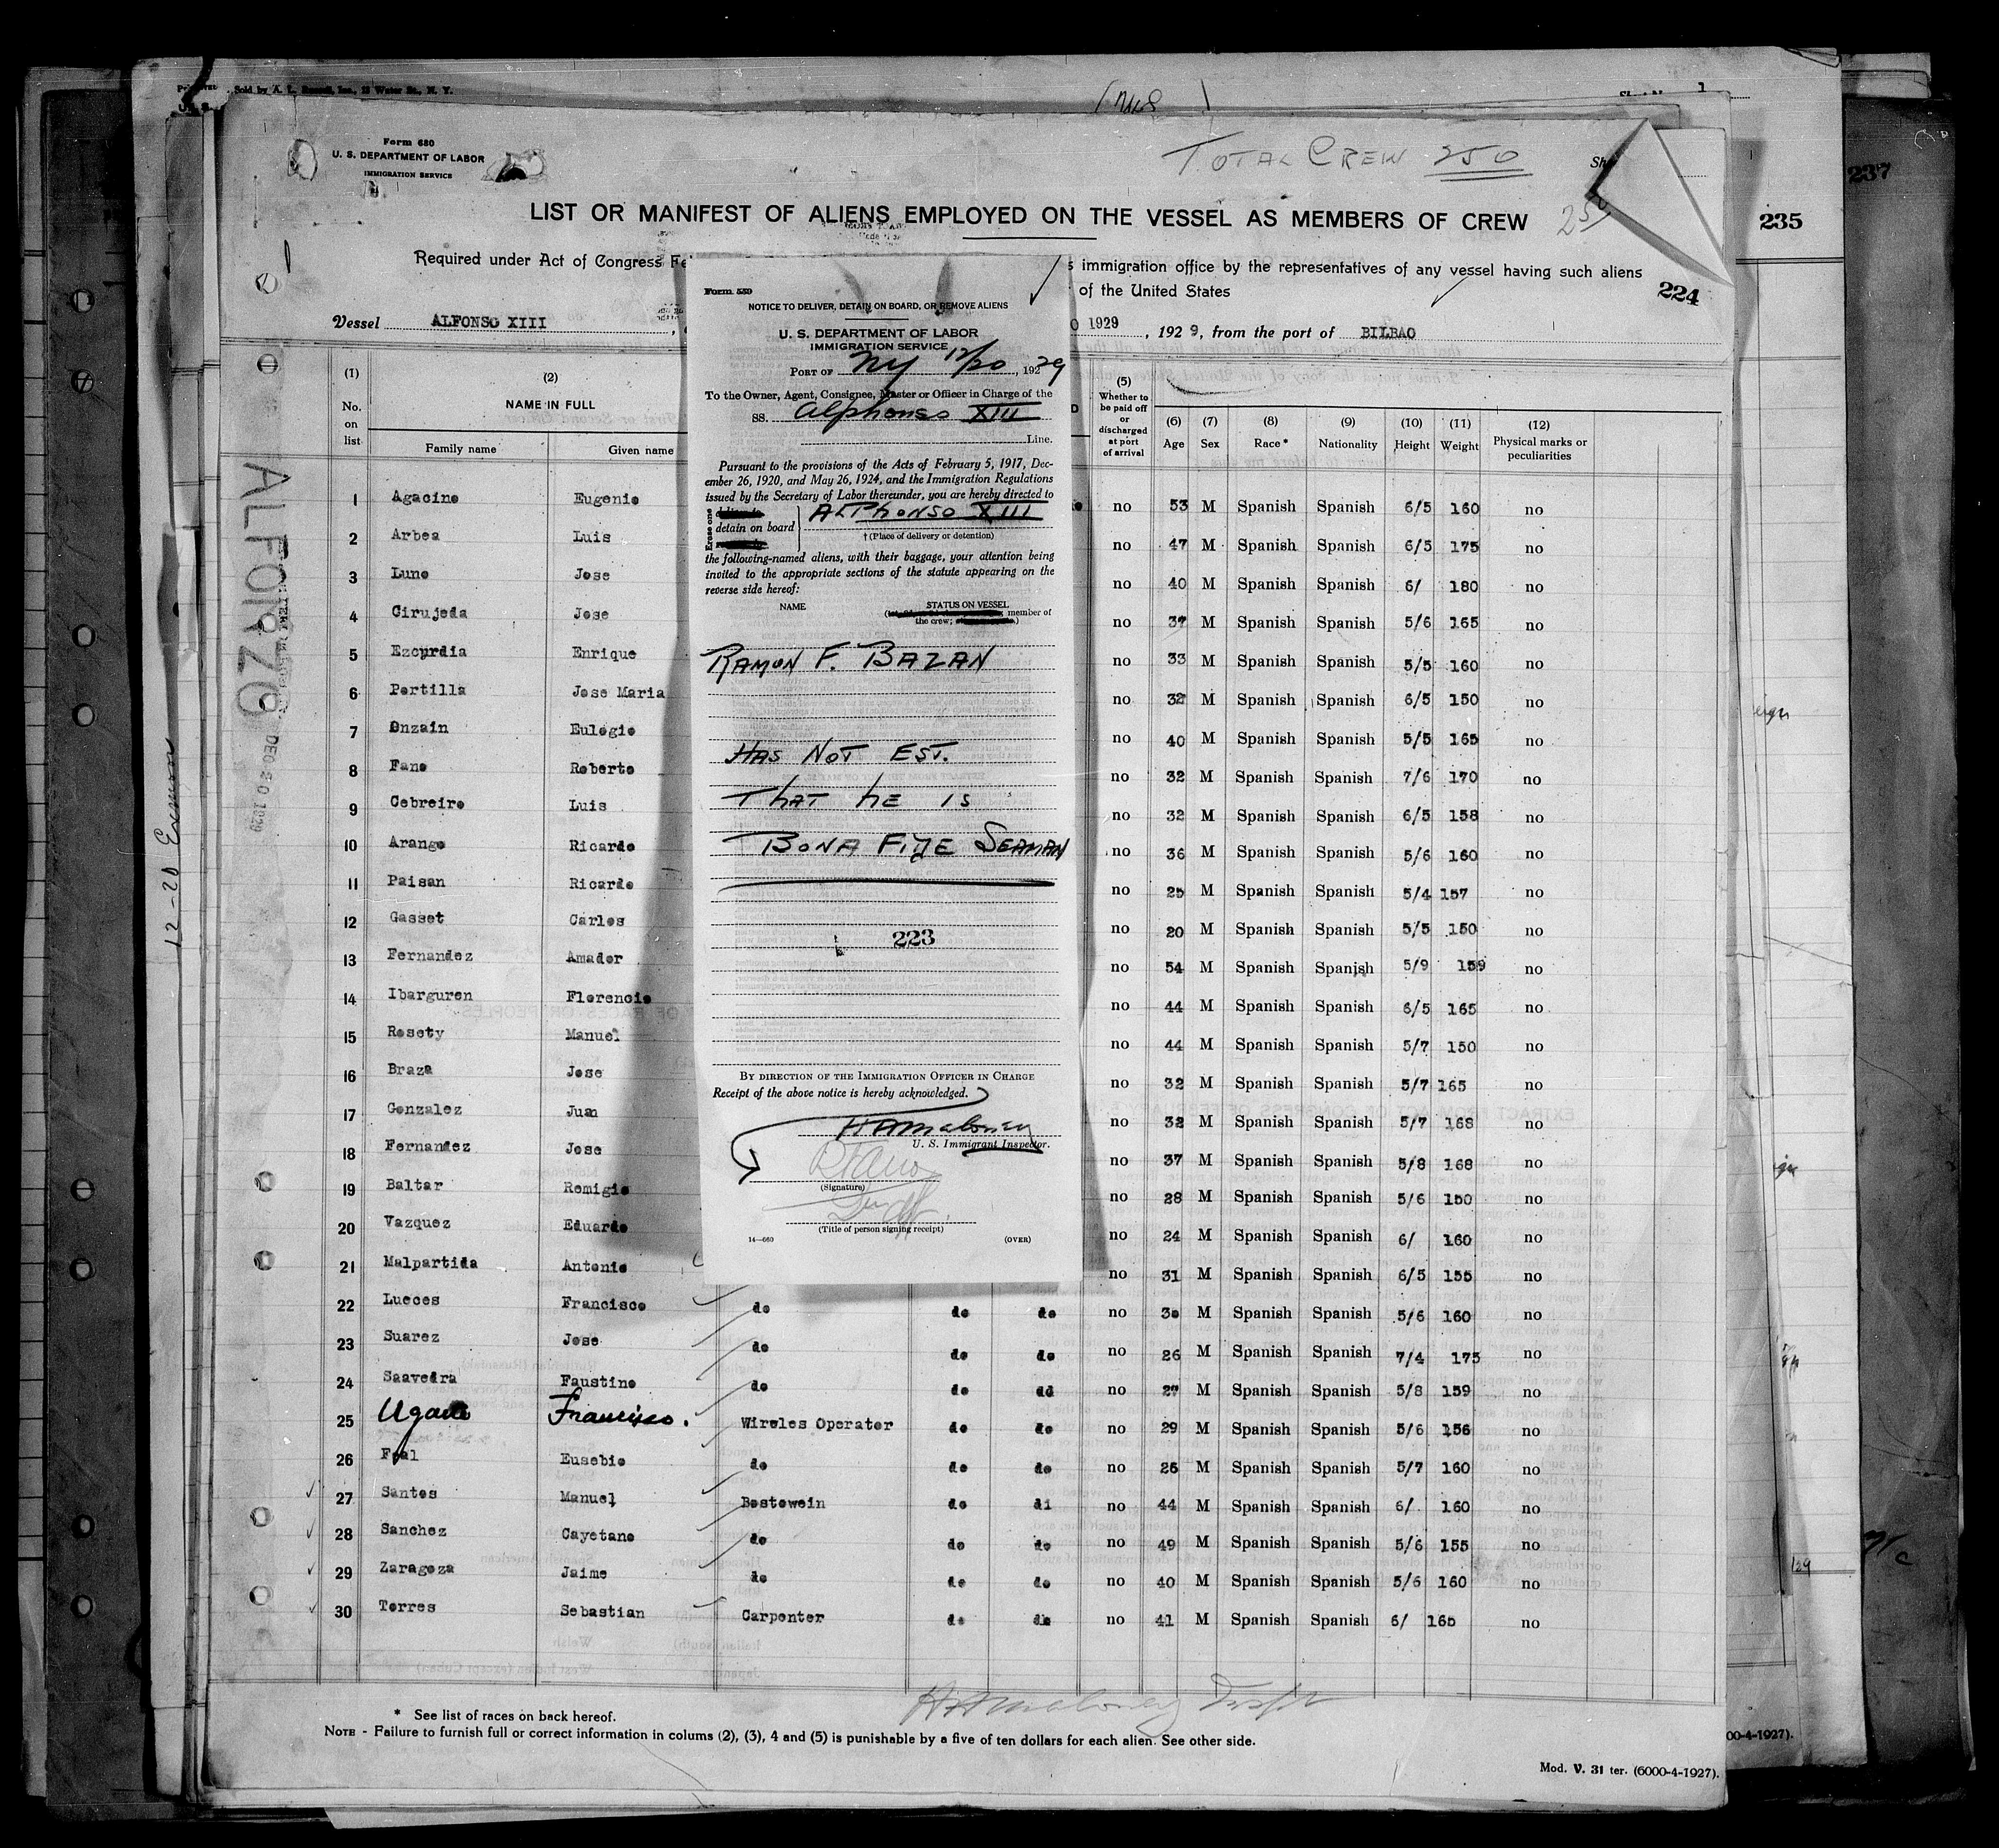 Sold by A. L. Russell, Inc., 12 Water St., N. Y.
1
237
235
Form 680
U. S. DEPARTMENT OF LABOR
IMMIGRATION SERVICE
TOTAL CREW 250
LIST OR MANIFEST OF ALIENS EMPLOYED ON THE VESSEL AS MEMBERS OF CREW
Required under Act of Congress
immigration office by the representatives of any vessel having such aliens
of the United States
224
Vessel ALFONSO XIII
1929, 1929, from the port of BILBAO
(1) No. on list
(2) NAME IN FULL
Family name Given name
(5) Whether to be paid off or discharged at port of arrival
(6) Age (7) Sex (8) Race * (9) Nationality (10) Height (11) Weight (12) Physical marks or peculiarities
1 Agacino Eugenio no 53 M Spanish Spanish 6/5 160 no
2 Arbea Luis no 47 M Spanish Spanish 6/5 175 no
3 Luno Jose no 40 M Spanish Spanish 6/ 180 no
4 Cirujeda Jose no 37 M Spanish Spanish 5/6 165 no
5 Ezcurdia Enrique no 33 M Spanish Spanish 5/5 160 no
6 Portilla Jose Maria no 32 M Spanish Spanish 6/5 150 no
7 Onzain Eulogio no 40 M Spanish Spanish 5/5 165 no
8 Fano Roberto no 32 M Spanish Spanish 7/6 170 no
9 Cebreiro Luis no 32 M Spanish Spanish 6/5 158 no
10 Arango Ricardo no 36 M Spanish Spanish 5/6 160 no
11 Paisan Ricardo no 25 M Spanish Spanish 5/4 157 no
12 Gasset Carlos no 20 M Spanish Spanish 5/5 150 no
13 Fernandez Amador no 54 M Spanish Spanish 5/9 159 no
14 Ibarguren Florencio no 44 M Spanish Spanish 6/5 165 no
15 Rosety Manuel no 44 M Spanish Spanish 5/7 150 no
16 Braza Jose no 32 M Spanish Spanish 5/7 165 no
17 Gonzalez Juan no 32 M Spanish Spanish 5/7 168 no
18 Fernandez Jose no 37 M Spanish Spanish 5/8 168 no
19 Baltar Remigio no 28 M Spanish Spanish 5/6 150 no
20 Vazquez Eduardo no 24 M Spanish Spanish 6/ 160 no
21 Malpartida Antonio no 31 M Spanish Spanish 6/5 155 no
22 Lueces Francisco do do do no 30 M Spanish Spanish 5/6 160 no
23 Suarez Jose do do do no 26 M Spanish Spanish 7/4 175 no
24 Saavedra Faustino do do dd no 27 M Spanish Spanish 5/8 159 no
25 Ugarte Francisco. Wireles Operater do do no 29 M Spanish Spanish 5/6 156 no
26 Eusebio do do do no 25 M Spanish Spanish 5/7 160 no
27 Santos Manuel Bostowein do di no 44 M Spanish Spanish 6/ 160 no
28 Sanchez Cayetano do do do no 49 M Spanish Spanish 5/6 155 no
29 Zaragoza Jaime do do do no 40 M Spanish Spanish 5/6 160 no
30 Torres Sebastian Carpenter do do no 41 M Spanish Spanish 6/ 165 no
* See list of races on back hereof.
NOTE - Failure to furnish full or correct information in colums (2), (3), 4 and (5) is punishable by a five of ten dollars for each alien. See other side.
Mod. V. 31 ter. (6000-4-1927).
00-4-1927).
DEC 20 1929
12-20
Form 559
NOTICE TO DELIVER, DETAIN ON BOARD, OR REMOVE ALIENS
U. S. DEPARTMENT OF LABOR
IMMIGRATION SERVICE
PORT OF NY 12/20, 1929
To the Owner, Agent, Consignee, Master or Officer in Charge of the
SS. Alphonso XIII
Line.
Pursuant to the provisions of the Acts of February 5, 1917, Dec-
ember 26, 1920, and May 26, 1924, and the Immigration Regulations
issued by the Secretary of Labor thereunder, you are hereby directed to
Erase one
detain on board
ALPHONSO XIII
† (Place of delivery or detention)
the following-named aliens, with their baggage, your attention being
invited to the appropriate sections of the statute appearing on the
reverse side hereof:
NAME
STATUS ON VESSEL
member of
the crew;
RAMON F. BAZAN
HAS NOT EST.
THAT HE IS
BONA FIDE SEAMAN
223
BY DIRECTION OF THE IMMIGRATION OFFICER IN CHARGE
Receipt of the above notice is hereby acknowledged.
HAMaloney
U. S. Immigrant Inspector.
(Signature)
(Title of person signing receipt)
14—660
(OVER)